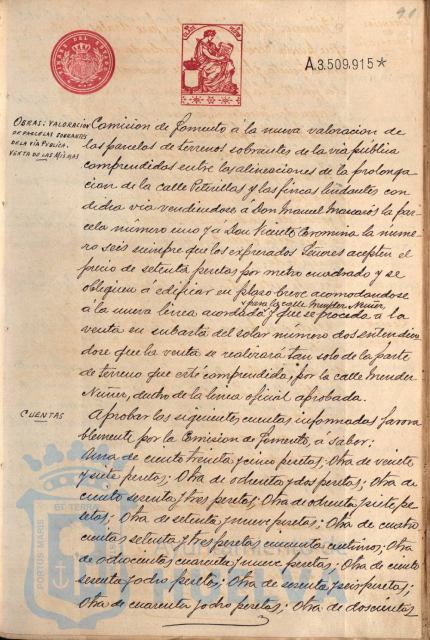 91
A.3.509.915*
OBRAS: VALORACION
DE PARCELAS SOBRANTES
DE LA VIA PUBLICA.
VENTA DE LAS MISMAS
Comision de Fomento á la nueva valoracion de
las parcelas de terrenos sobrantes de la via publica
comprendidas entre las alineaciones de la prolonga
cion de la calle Puntillas y las fincas lindantes con
dicha via vendiendose á Don Manuel la par
cela número uno y á Don Vicente la nume
ro seis siempre que los expresados Señores acepten el
precio de setenta pesetas por metro cuadrado y se
obliguen á edificar en plazo breve acomodandose
para la calle Mendez Nuñez,
á la nueva linea acordada y que se proceda á la
venta en subasta del solar número dos entendien
dose que la venta se realizará tan solo de la parte
de terreno que esté comprendida, por la calle Mendez
Nuñez, dentro de la linea oficial aprobada.
CUENTAS
Aprobar las siguientes cuentas informadas favora
blemente por la Comision de Fomento, á saber:
Una de ciento treinta y cinco pesetas; Otra de veinte
y siete pesetas; Otra de ochenta y dos pesetas; Otra de
ciento sesenta y tres pesetas; Otra de ochenta y siete pe
setas; Otra de setenta y nueve pesetas; Otra de cuatro
cientas setenta y tres pesetas cincuenta centimos; Otra
de ochocientas cuarenta y nueve pesetas; Otra de ciento
sesenta y ocho pesetas; Otra de sesenta y seis pesetas;
Otra de cuarenta y ocho pesetas; Otra de doscientas
PORTUS MARIS
ET TERRAE
Ayuntamiento de
HUELVA